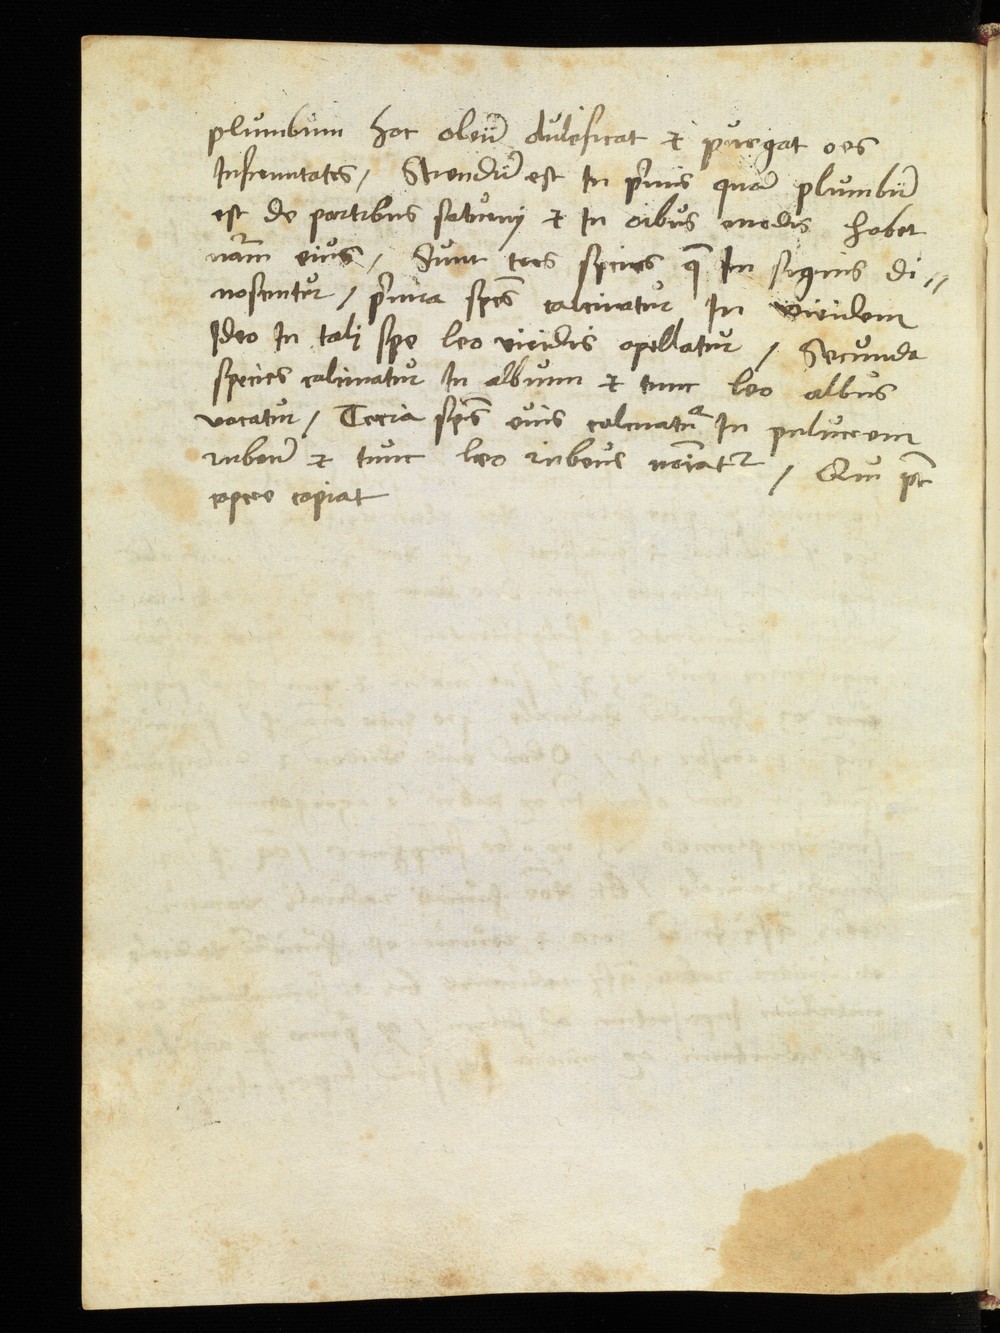 plumbum hoc oleū dulcificat et purgat oēs
Infirmitates / Sciendū est In pīmis quod plumbū
est de partibus saturnj et In oībus modis habet
nāam eius / Sunt tres species q̄ In signis di//
noscentur / pīma spēs calcinatur In viridem
Ideo In talj spe leo viridis apellatur / Secunda
species calcinatur In album et tunc leo albus
vocatur / Tercia spēs eius calcinatur In puluerem
rubeū et tunc leo rubeus noīatur / Qui pt̄
capere capiat